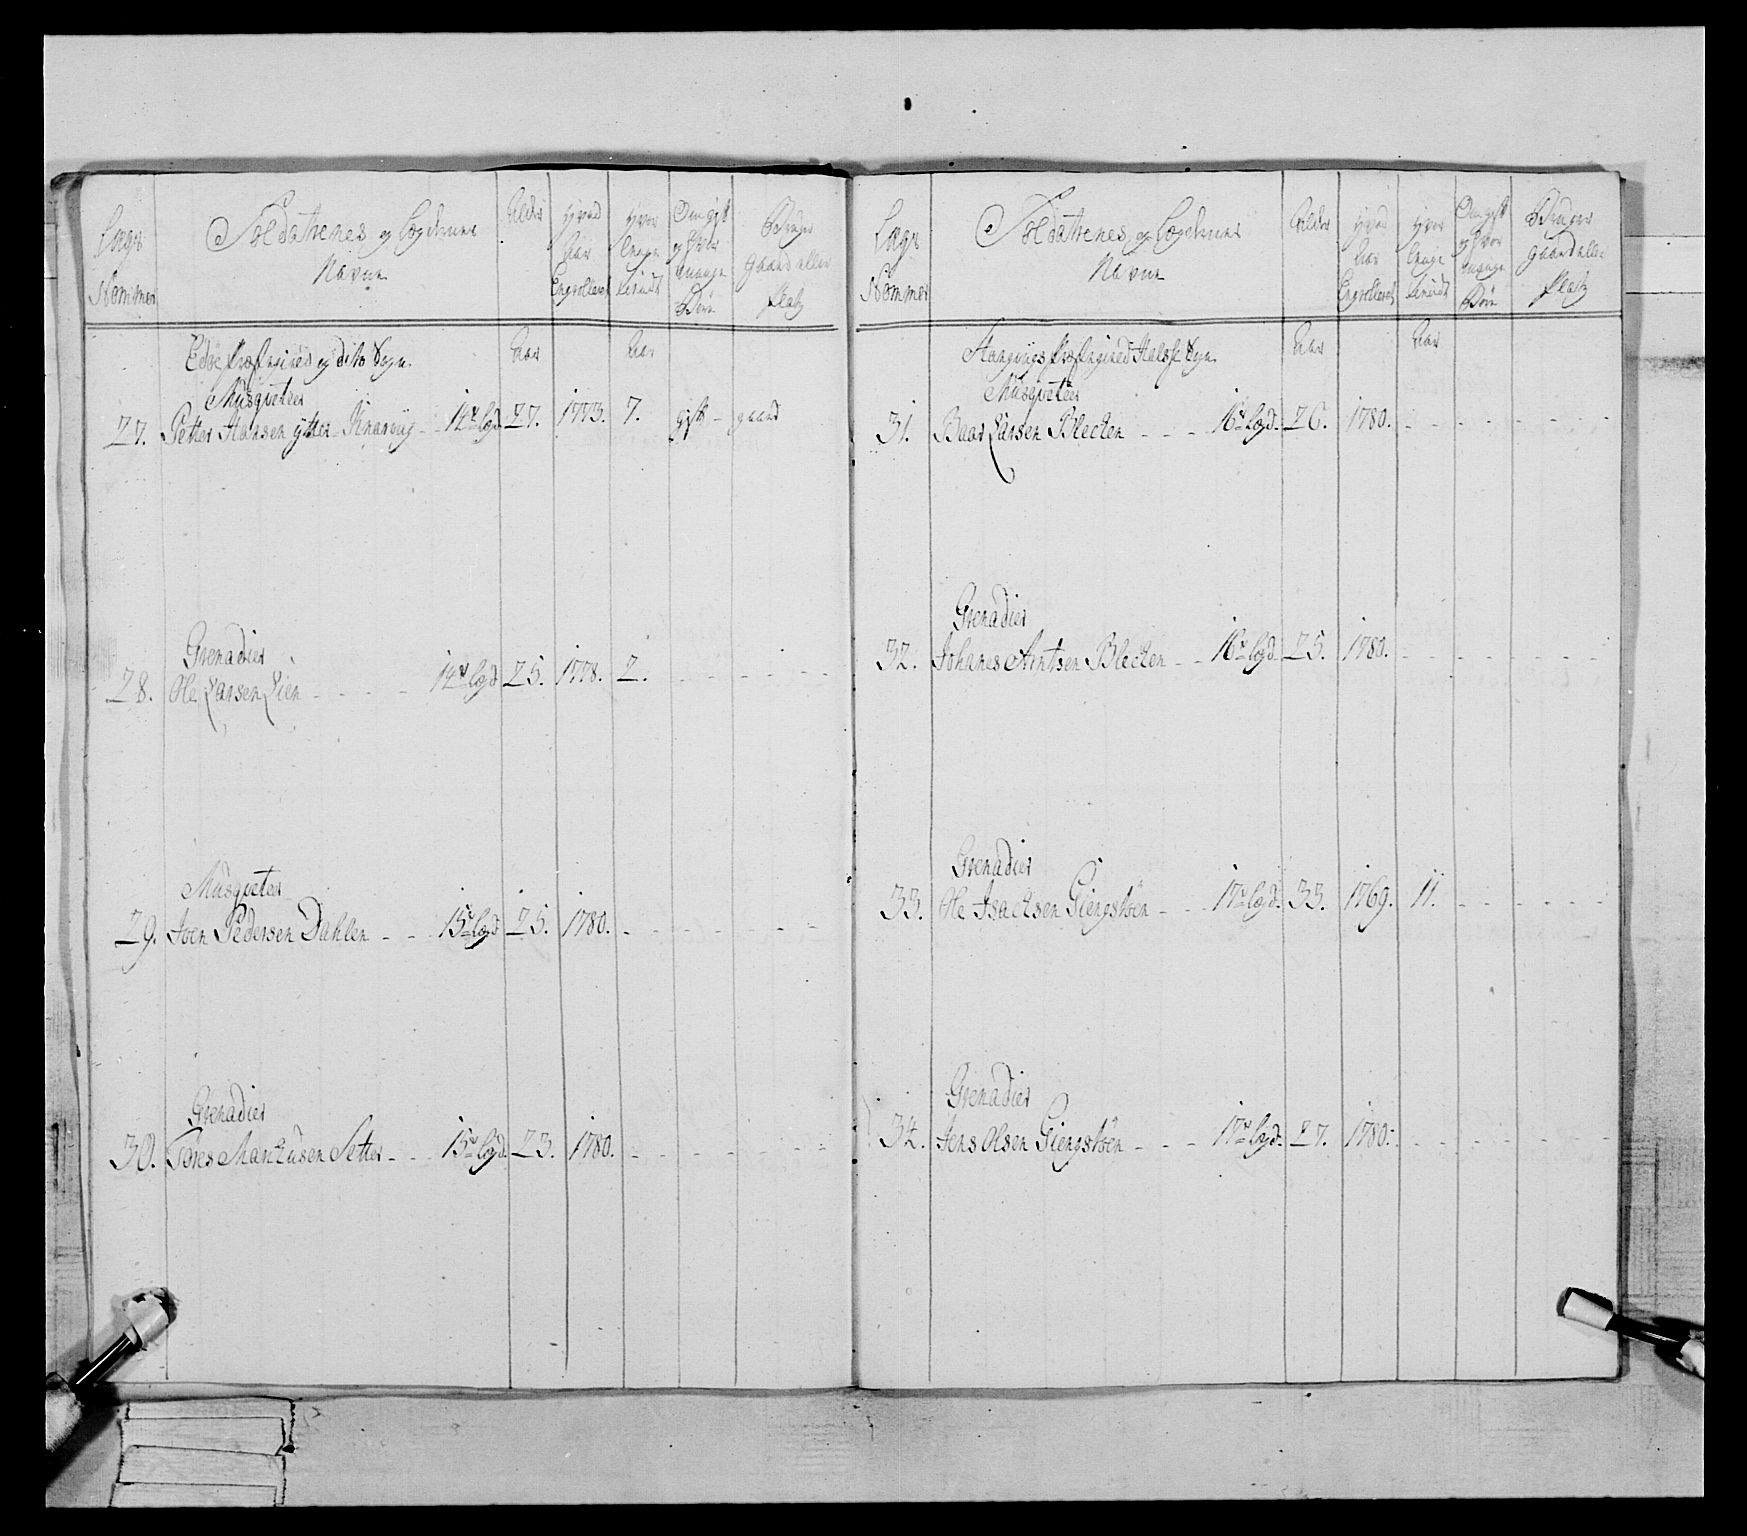 Laugs Nommer
Soldaternes og Lægdernes Navne
Alder
Hvad Aar Engrolleret
Hvor lenge tient
Om gift og hvor mange Børn
Bruger gaard eller Platz
Edöe Præstegield og dito Sogn
Aar
Aar
Musqveteer
27. Petter Hansen ytter Knarvüg - 14de lægd 27. 1773. 7. gift - gaard
Grenadier
28. Ole Larsen Lien - - - - 14de lægd 25. 1778. 2. - - - - - -
Musqveteer
29. Joen Pedersen Dahlen - - 15de lægd 25. 1780. - - - - - - -
Grenadier
30. Tøres Marküsen Setter - - - 15de lægd. 23. 1780. - - - - - - -
Laugs Nommer
Soldaternes og Lægdernes Navne
Alder
Hvad Aar Engrolleret
Hvor lenge tient
Om gift og hvor mange Børn
Bruger gaard eller Platz
Stangvigs Præstegield Halsse Sogn
Aar
Aar
Musqveteer
31. Baar Larsen Blecken - - - 16de lægd. 26. 1780. - - - - - - -
Grenadier
32. Johanes Arntsen Blecken - - 16de lægd. 25. 1780. - - - - - - -
Grenadier
33. Ole Isacksen Giengstöen - - 17de lægd. 33. 1769. 11. - - - - - -
Grenadier
34. Jens Olsen Giengstöen - - - 17de lægd. 27. 1780. - - - - - - -